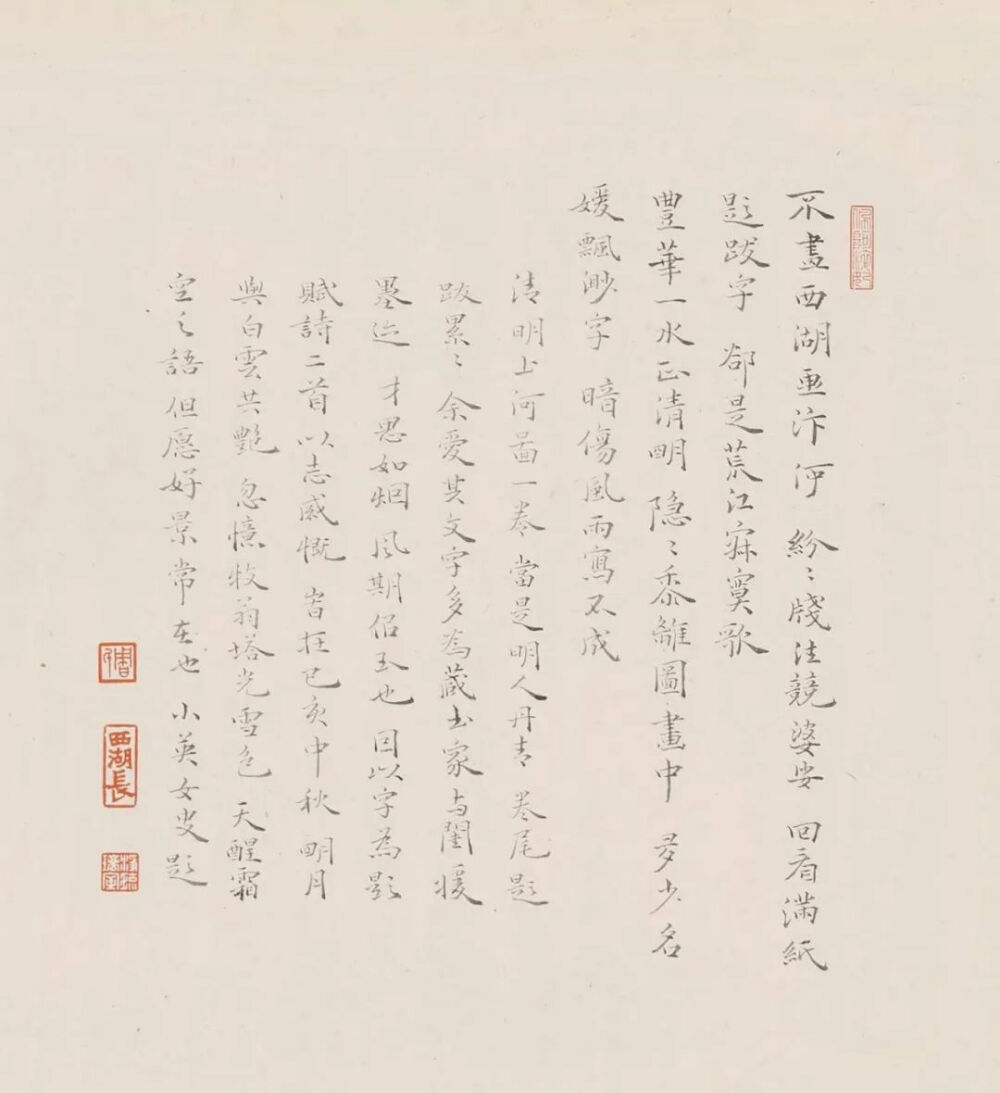 不盡西湖亜汴河 紛〻牋注競婆娑 回看滿紙
題跋字 郤是荒江寂寞歌
豐華一水正清明 隐〻黍離圖畫中 多少名
媛飄渺字 暗傷風雨寫不成
清明上河畵一卷 當是明人丹青 卷尾題
跋累〻 余愛其文字多為藏書家与閨媛
墨迹 才思如烟 风期侣玉也 因以字為題
賦詩二首以志感慨 岢在己亥中秋 明月
與白雲共艷 忽憶牧翁塔光雪色 天醒霜
空之語 但愿好景常在也 小英女史題
西湖長